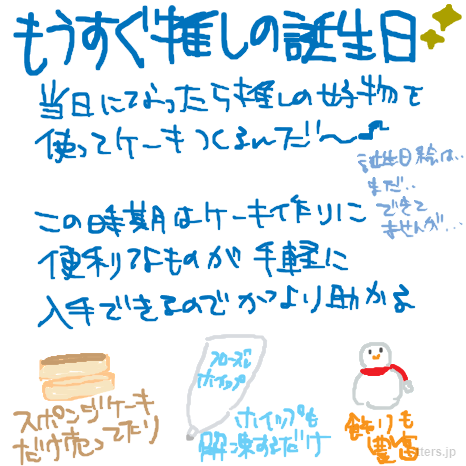 もうすぐ推しの誕生日
当日になったら推しの好物を
使ってケーキつくるんだ〜♪
誕生日絵は..
まだ..
できて
ませんが...
この時期はケーキ作りに
便利なものが手軽に
入手できるのでかなり助かる
フローズン
ホイップ
スポンジケーキ
だけ売ってたり
ホイップも
解凍するだけ
飾りも
豊富